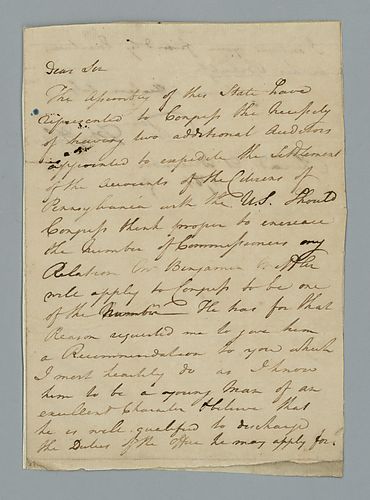 Dear Sir
The Assembly of this State have
represented to Congress the Necessity
of having two additional Auditors
appointed to expedite the Settlement
of the Accounts of the Citizens of
Pennsylvania with the U.S. Should
Congress think proper to increase
the Number of Commissioners my
Relation Benjamin
will apply to Congress to be one
of the Number He has for that
Reason requested me to give him
a Recommendation to you which
I most heartily do as I know
him to be a young Man of an
excellent Character & believe that
he is well qualified to discharge
the Duties of the office he may apply for.